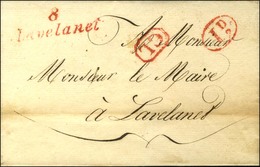 8
Lavelanet
A Monsieur
Monsieur le Maire
à Lavelanet